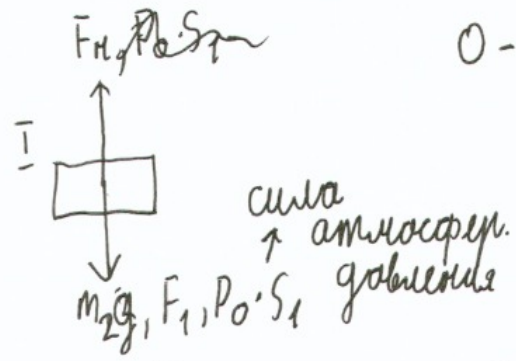 Fн, P₀·S₁ O -
I
сила
атмосфер.
давления
m₂g, F₁, P₀·S₁